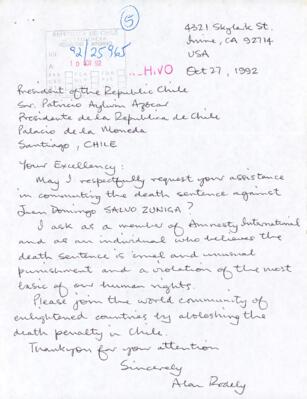 5
4321 Skylark St.
Irvine, CA 92714
USA
Oct 27, 1992
REPUBLICA DE CHILE
92/25965
ARCHIVO
President of the Republic Chile
Snr. Patricio Aylwin Azocar
Presidente de la Republica de Chile
Palacio de la Moneda
Santiago, CHILE
Your Excellency:
May I respectfully request your assistance
in commuting the death sentence against
Juan Domingo SALVO ZUNIGA?
I ask as a member of Amnesty International
and as an individual who believes the
death sentence is cruel and unusual
punishment and a violation of the most
basic of our human rights.
Please join the world community of
enlightened countries by abolishing the
death penalty in Chile.
Thankyou for your attention
Sincerely
Alan